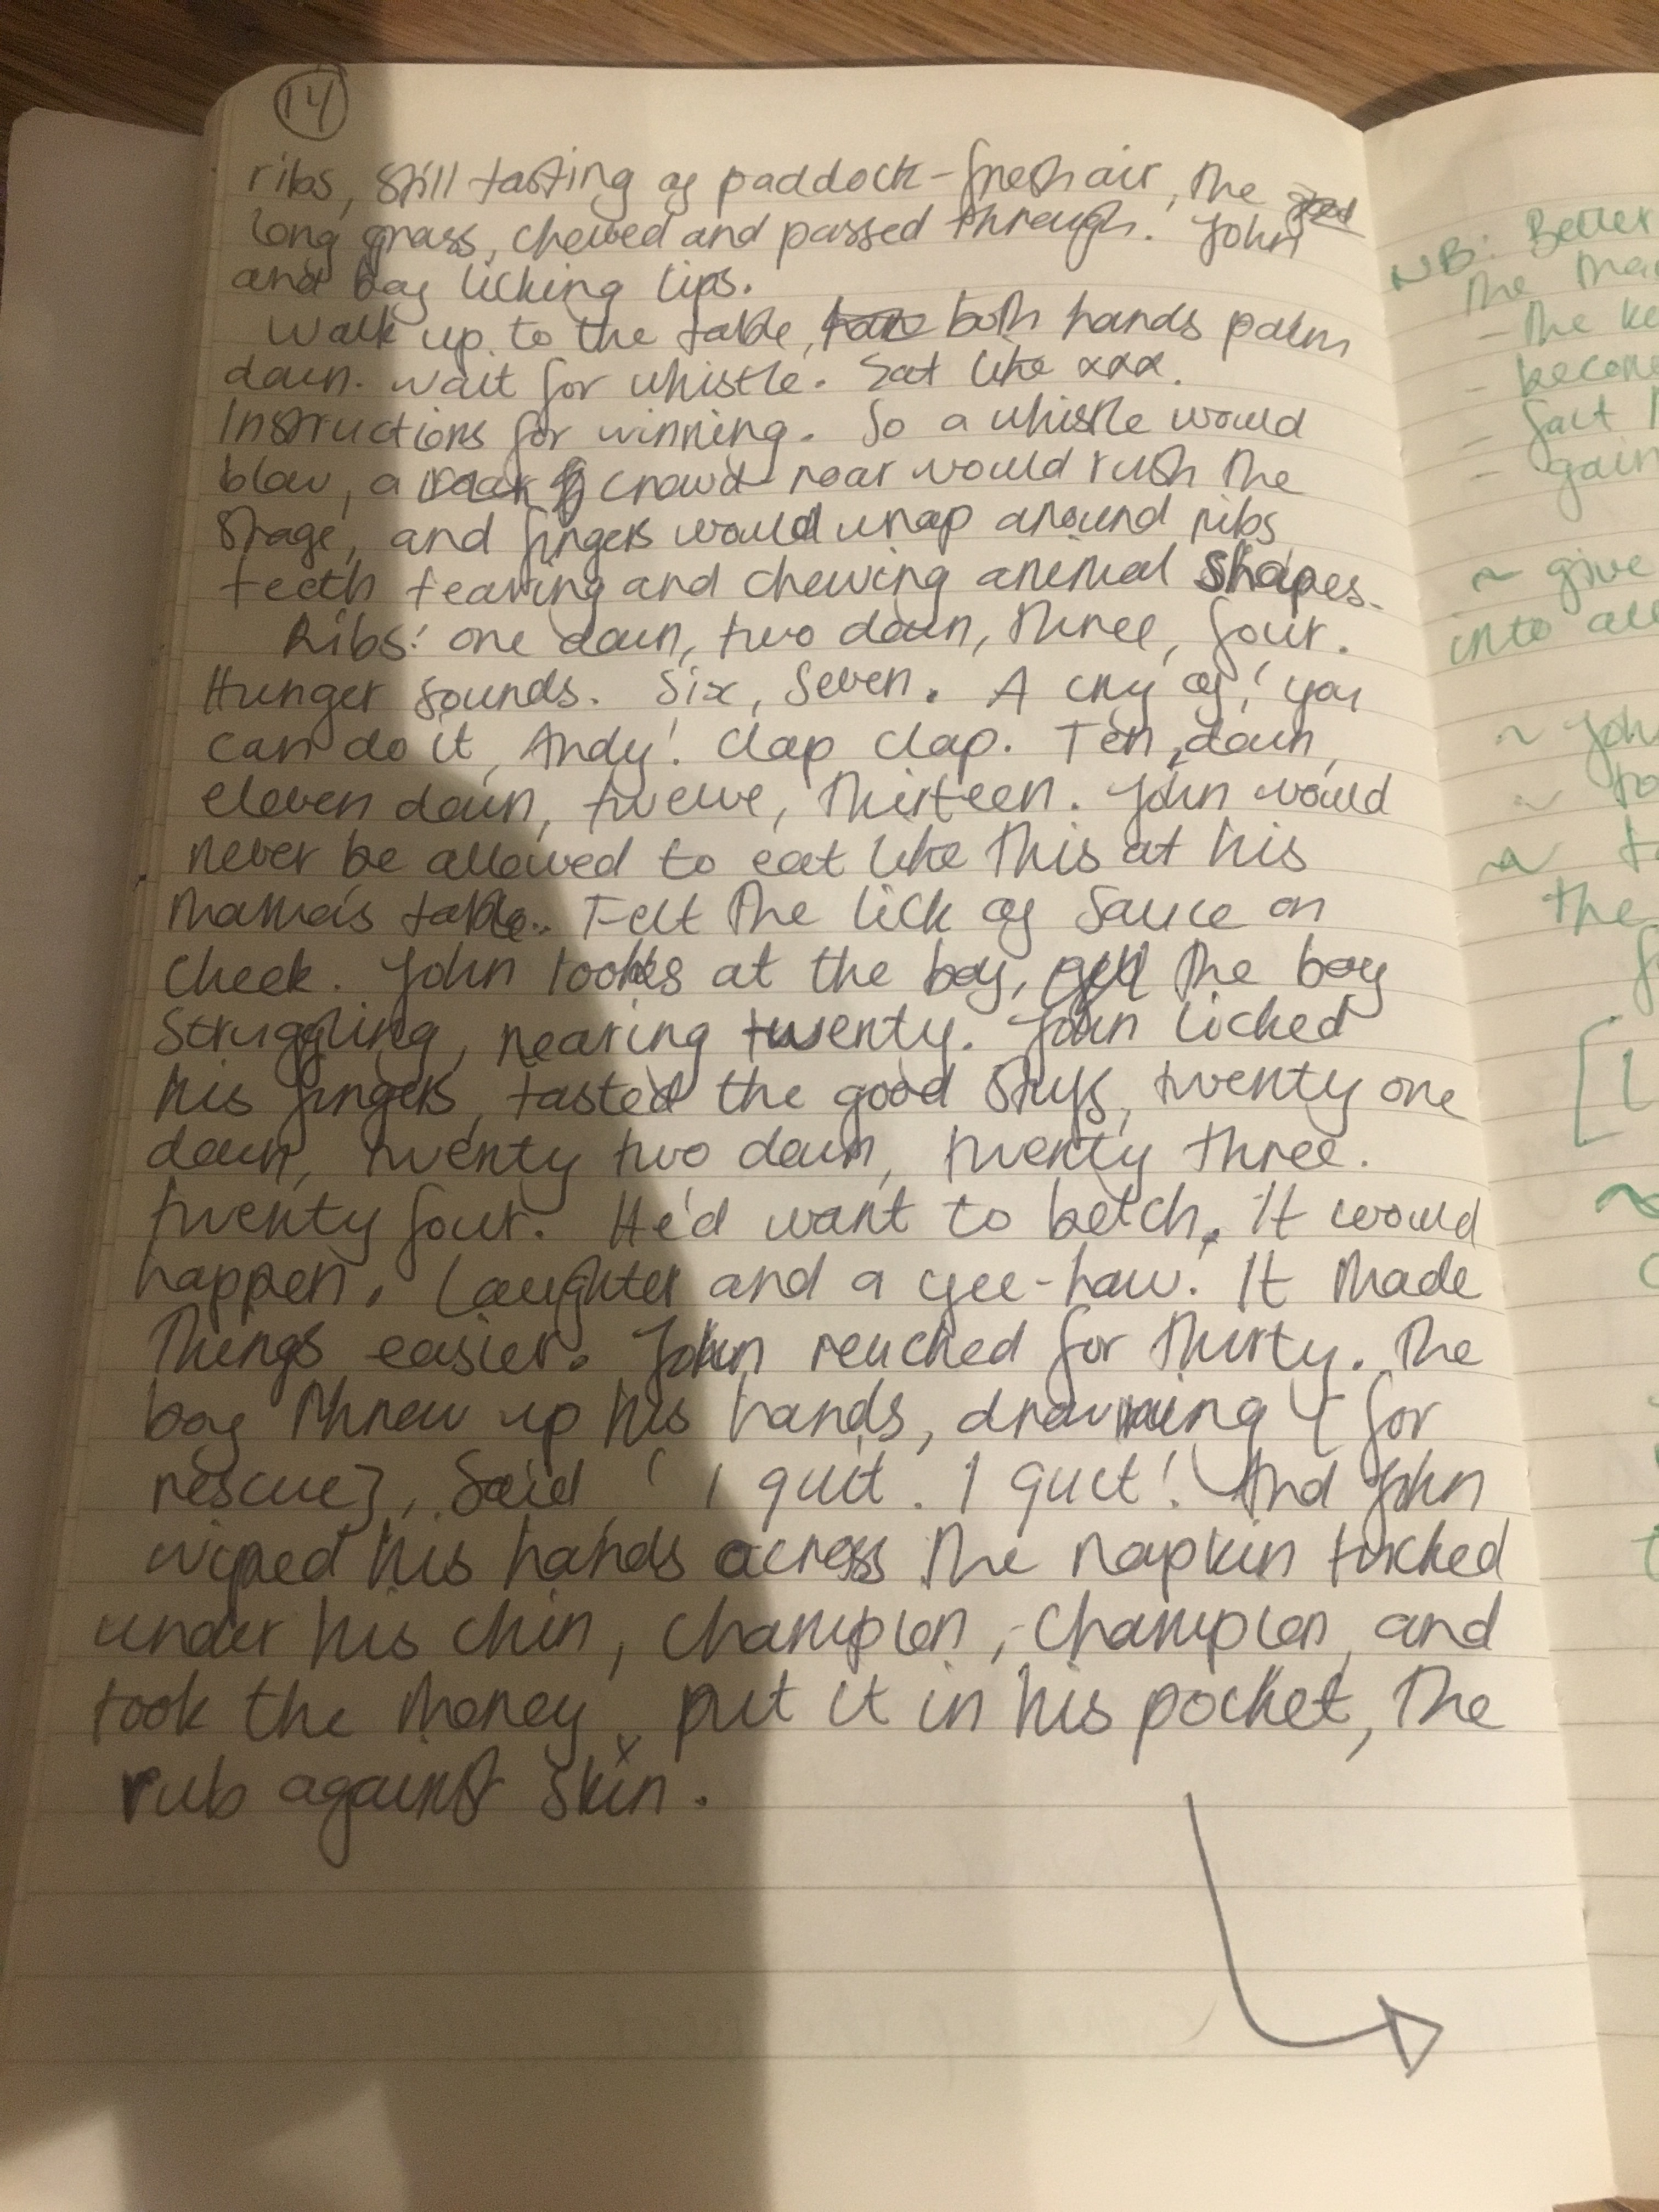 14
ribs, still tasting of paddock-fresh air, the
long grass, chewed and passed through. John
and boy licking lips.
Walk up to the table, both hands palm
down. Wait for whistle. Sat like xxx.
Instructions for winning. So a whistle would
blow, a crowd roar would rush the
stage, and fingers would wrap around ribs
teeth tearing and chewing animal shapes.
Ribs: one down, two down, three, four.
Hunger sounds. Six, seven. A cry of 'you
can do it, Andy'. Clap clap. Ten down,
eleven down, twelve, thirteen. John would
never be allowed to eat like this at his
mama's table. Felt the lick of sauce on
cheek. John looks at the boy, the boy
struggling, nearing twenty. John licked
his fingers, tasted the good stuff, twenty one
down, twenty two down, twenty three.
twenty four. He'd want to belch. It would
happen. Laughter and a yee-haw. It made
things easier. John reached for thirty. The
boy threw up his hands, drowning [for
rescue], said 'I quit. I quit'. And John
wiped his hands across the napkin tucked
under his chin, champion, champion, and
took the money, put it in his pocket, the
rub against skin.
NB: Better
the
- the
- become
-
- gain
~ give
into
~
~
~
the
[
~